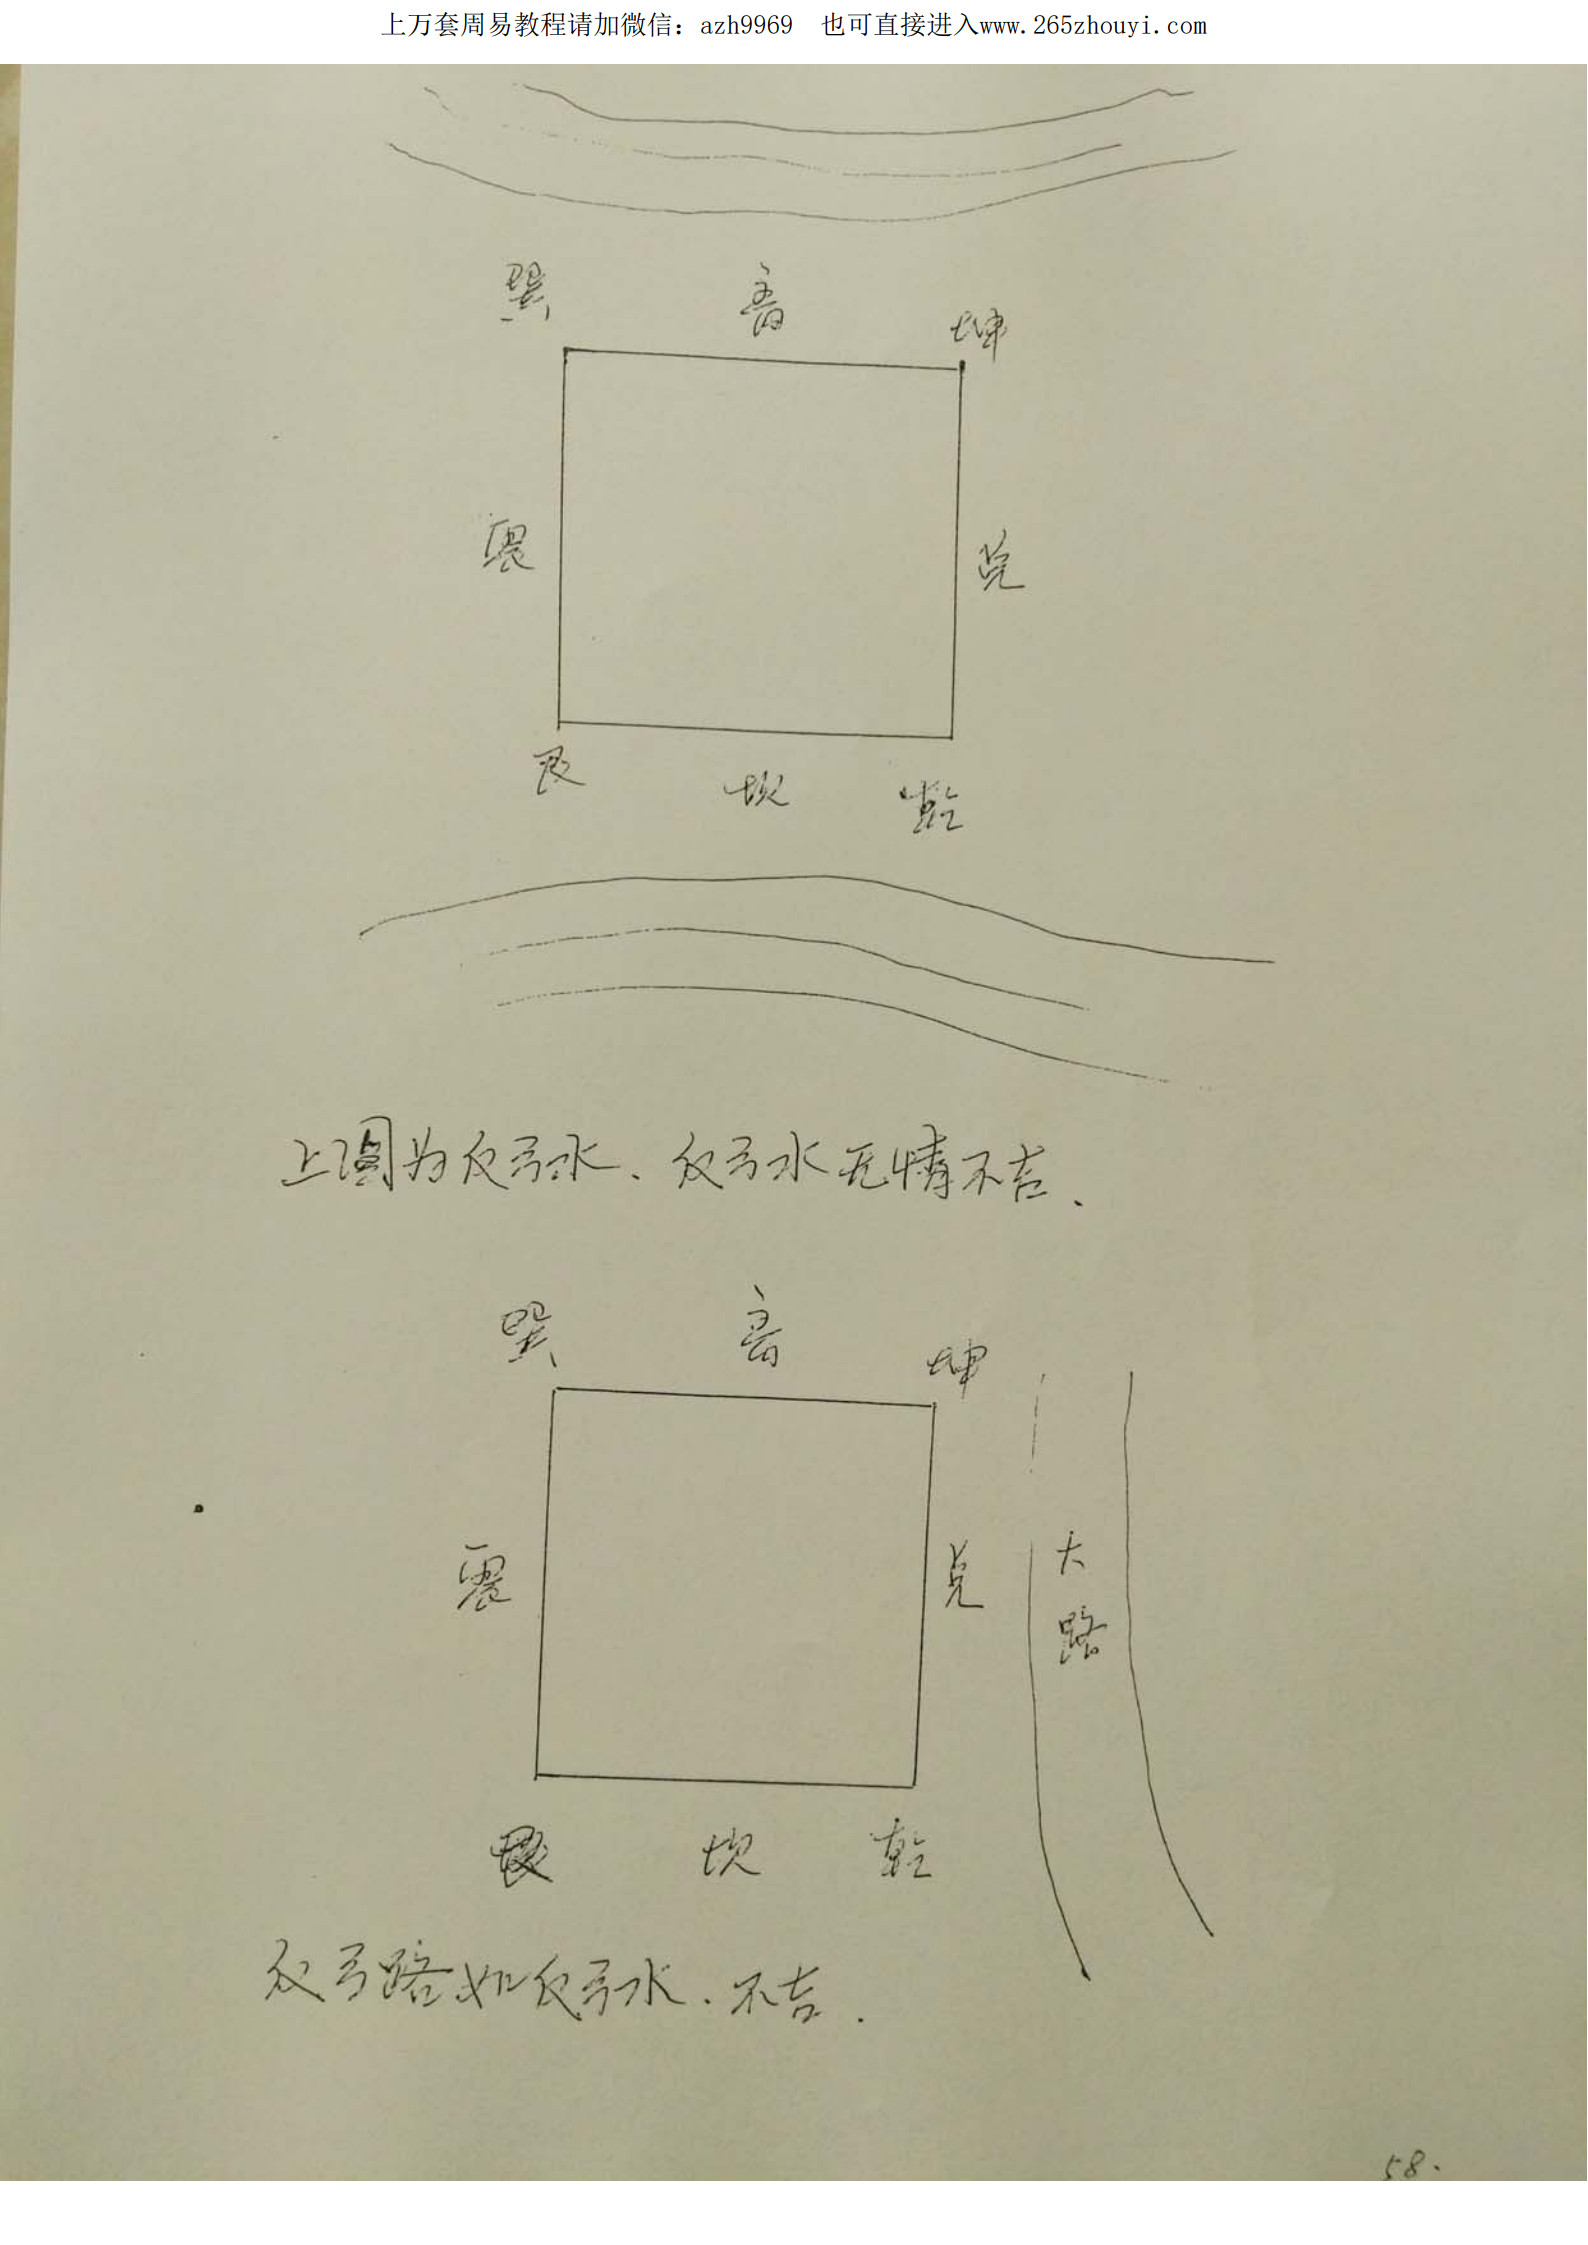 上万套周易教程请加微信：azh9969　也可直接进入www.265zhouyi.com
巽 离 坤
震 兑
艮 坎 乾
上图为反弓水、反弓水无情不吉.
巽 离 坤
震 兑
大路
艮 坎 乾
反弓路如反弓水、不吉.
58.